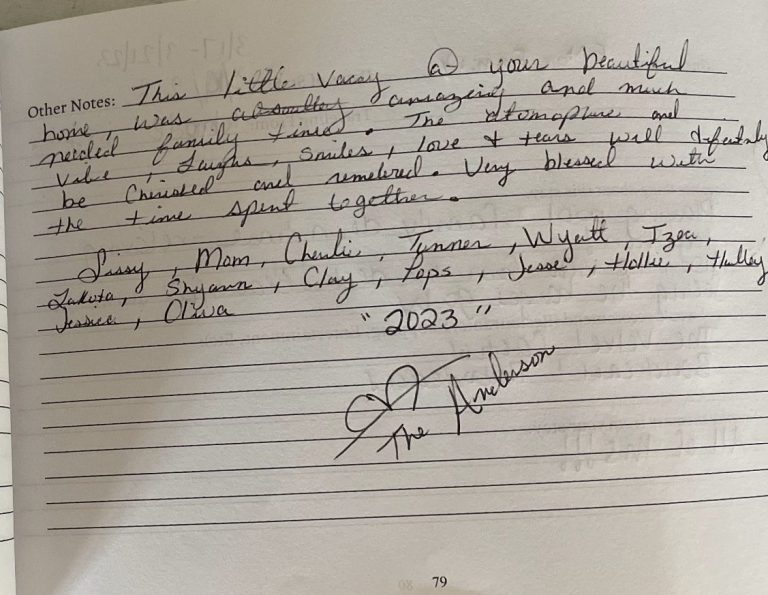 Other Notes: This little vacay @ your beautiful
home, was amazeing and much
needed family time. The atomosphure and
value, Laughs, Smiles, love & tears will defeatnly
be Cherished and remebered. Very blessed with
the time spent together.
Sissy, Mom, Charli, Tanner, Wyatt,
Lakota, Shyann, Clay, Pops, Jesse, Hollie, Hailey
Jessica, Oliva
"2023"
The Anderson
79